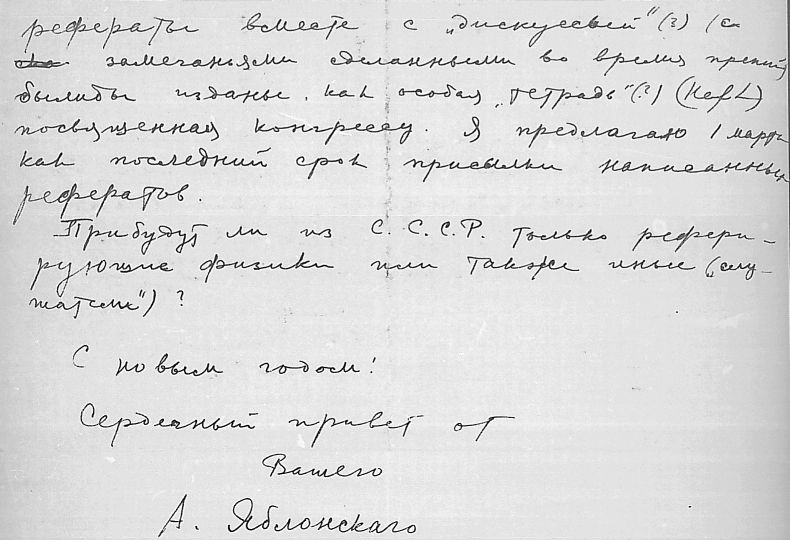 рефераты вместе с „дискуссьей" (?) (с
замечаньями сделанными во время прений)
былибы изданы, как особая „тетрадь" (?) (Heft)
посвященная конгрессу. Я предлагаю 1 марта
как последний срок присылки написанных
рефератов.
Прибудут ли из С.С.С.Р. только рефери-
рующие физики или также иные („слу-
жатели") ?
С новым годом!
Сердечный привет от
Вашего
А. Яблонскаго